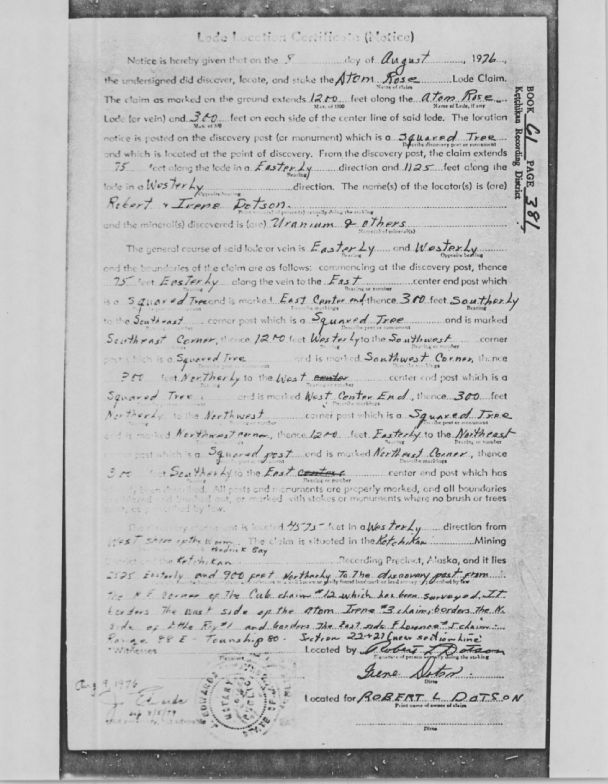 Lode Location Certificate (Notice)
Notice is hereby given that on the 8 day of August, 1976,
the undersigned did discover, locate, and stake the Atom Rose Lode Claim.
Name of claim
The claim as marked on the ground extends 1200 feet along the Atom Rose
Max. of 1500 Name of Lode, if any
Lode (or vein) and 300 feet on each side of the center line of said lode. The location
Max. of 300
notice is posted on the discovery post (or monument) which is a Squared Tree
Describe discovery post or monument
and which is located at the point of discovery. From the discovery post, the claim extends
75 feet along the lode in a Easterly direction and 1125 feet along the
Bearing
lode in a Westerly direction. The name(s) of the locator(s) is (are)
Opposite bearing
Robert & Irene Dotson.
and the mineral(s) discovered is (are) Uranium & others
Name(s) of mineral(s)
The general course of said lode or vein is Easterly and Westerly
Bearing Opposite bearing
and the boundaries of the claim are as follows: commencing at the discovery post, thence
75 feet Easterly along the vein to the East center end post which
Bearing Bearing or number
is a Squared Tree and is marked East Center end thence 300 feet Southerly
Describe markings Bearing
to the Southeast corner post which is a Squared Tree and is marked
Describe post or monument
Southeast Corner, thence 1200 feet Westerly to the Southwest corner
Bearing or number
post which is a Squared Tree and is marked Southwest Corner, thence
300 feet Northerly to the West center end post which is a
Squared Tree and is marked West Center End, thence 300 feet
Describe markings
Northerly to the Northwest corner post which is a Squared Tree
Describe post or monument
and is marked Northwest corner, thence 1200 feet Easterly to the Northeast
Bearing Bearing or number
post which is a Squared post and is marked Northeast Corner, thence
Describe markings
300 feet Southerly to the East center end post which has
Bearing or number
been described. All posts and monuments are properly marked, and all boundaries
marked with stakes or monuments where no brush or trees
by law.
The discovery monument is located 4575 feet in a Westerly direction from
West shore of the The claim is situated in the Ketchikan Mining
Bay
Ketchikan Recording Precinct, Alaska, and it lies
2525 Easterly and 900 feet Northerly To the discovery post from
the N.E. Corner of the Cub claim #12 which has been surveyed. It
borders the West side of the Atom Irene #3 claim, borders the N.
side of the #1 and borders the East side Florence #5 claim.
Range 88 E - Township 80 - Section 22+21 (new section line)
Witnesses
Located by Robert L Dotson
Signature of person actually doing the staking
Irene Dotson
Ditto
Located for ROBERT L DOTSON
Print name of owner of claim
Ditto
Aug 9, 1976
NOTARY
BOOK 61 PAGE 381
Ketchikan Recording District